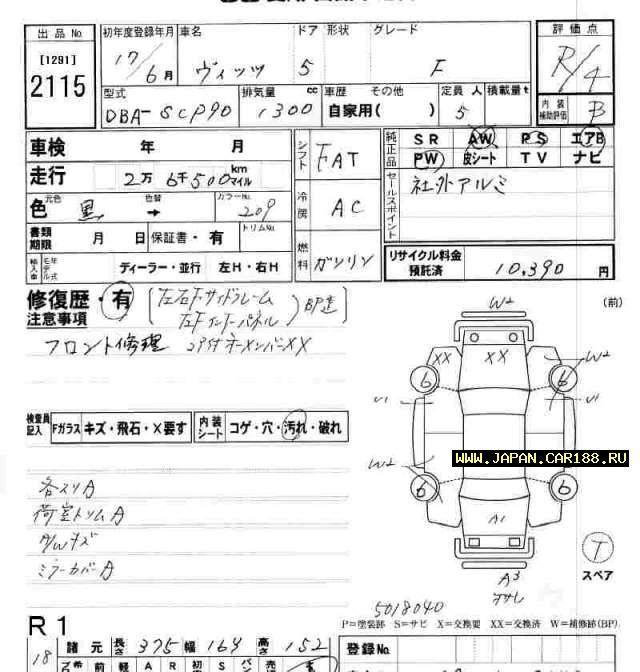 出品No 初年度登録年月 車名 ドア 形状 グレード 評価点
[1291] 17/6月 ヴィッツ 5 F R/4
2115 型式 排気量 cc 車歴 その他 定員 人 積載量 t 内装補助評価
DBA-SCP90 1300 自家用( ) 5 B
車検 年 月 シフト FAT 純正品 SR AW PS エアB
PW 皮シート TV ナビ
走行 2万6千500 km マイル セールスポイント 社外アルミ
色 元色 黒 色替 → カラーNo. 209 冷房 AC
書類期限 月 日 保証書・有 トリムNo. 燃料 ガソリン リサイクル料金預託済 10,390 円
輸入車 モデル年式 ディーラー・並行 左H・右H
修復歴・有 左右Fサイドフレーム (前)
注意事項 左Fインナーパネル
フロント修理 XX
W2
XX XX W2
6 6
U1 U1
検査員記入 Fガラス キズ・飛石・X要す 内装シート コゲ・穴・汚れ・破れ
WWW.JAPAN.CAR188.RU
W2
6 6
各スリA
荷室トリムA
A1
ミラーカバーA
T
スペア
A3
5018040
P=塗装跡 S=サビ X=交換要 XX=交換済 W=補修跡(BP)
R1
18 諸元 長さ 375 幅 169 高さ 152 登録No.